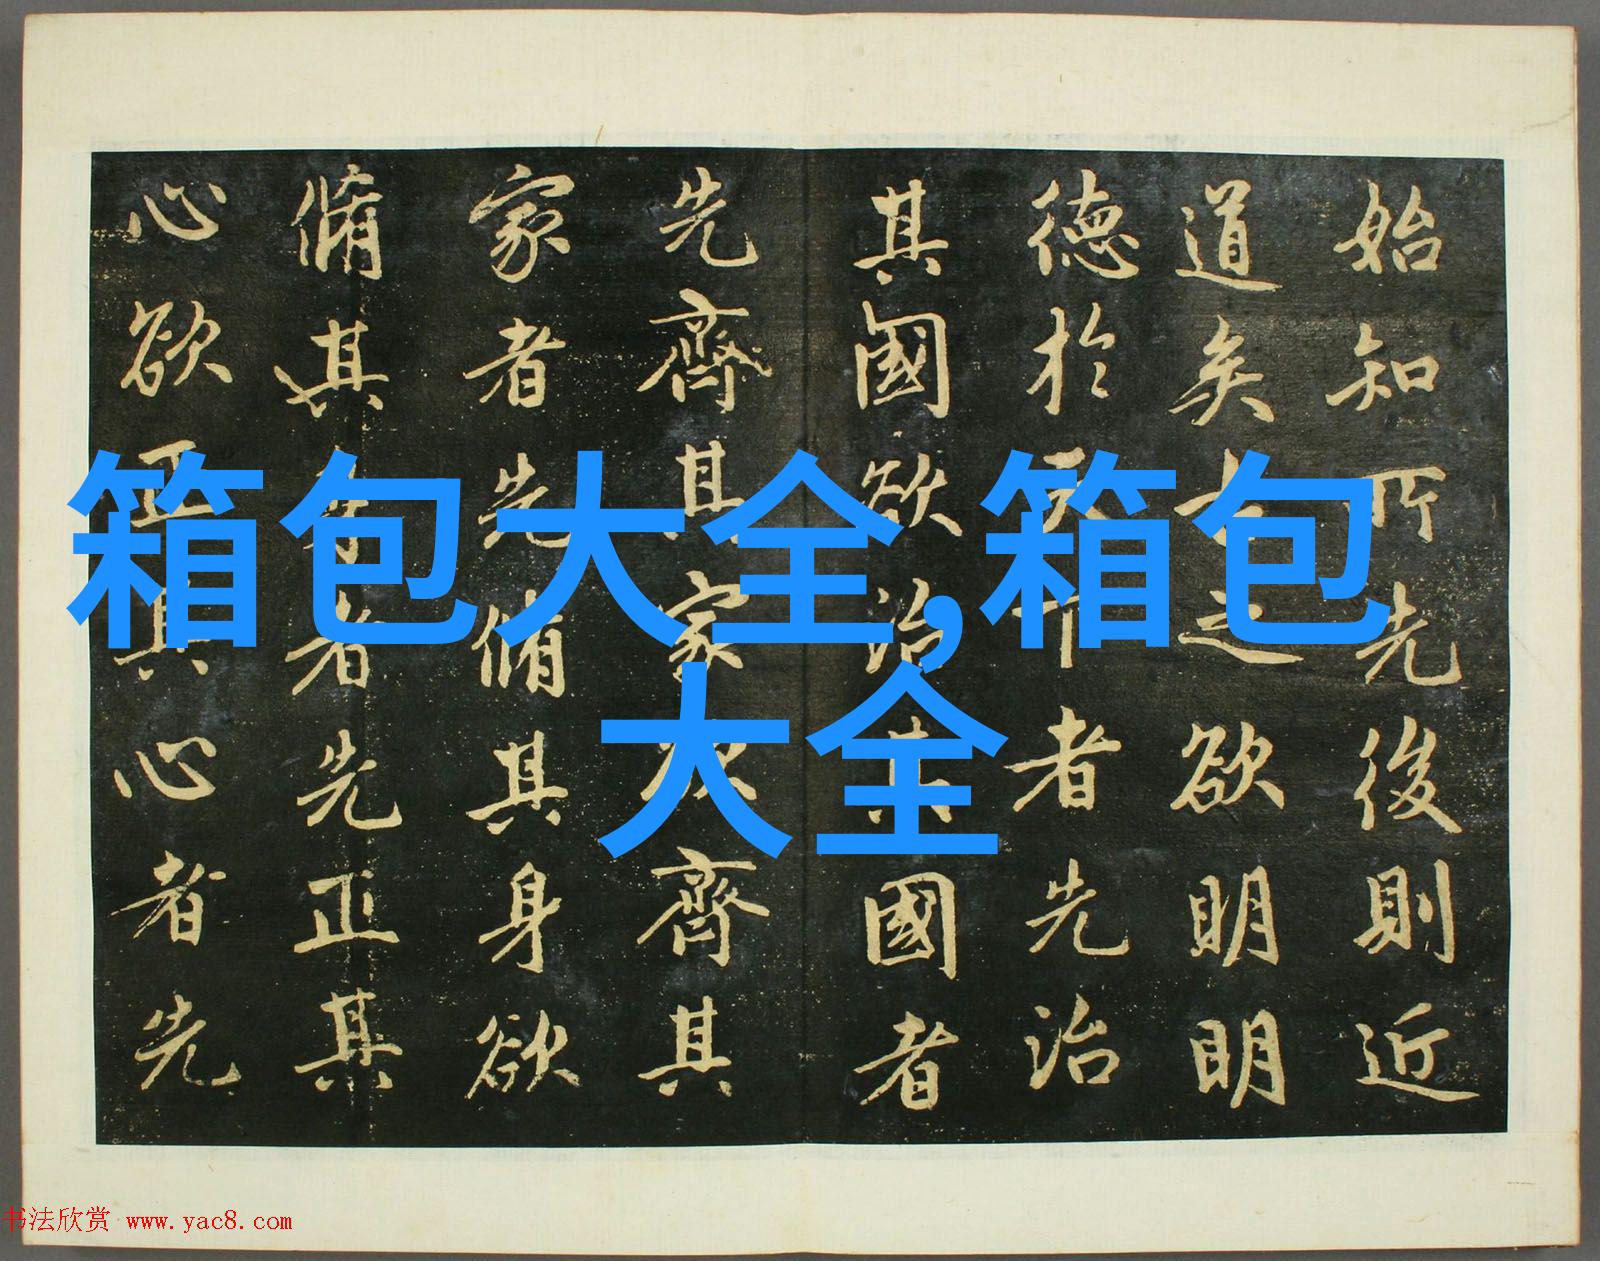 箱包大全,箱包
大全
始知所先後則近
道矣古之欲明明
德於天下者先治
其國欲治其國者
先齊其家欲齊其
家者先脩其身欲
脩其身者先正其
心欲正其心者先
书法欣赏 www.yac8.com